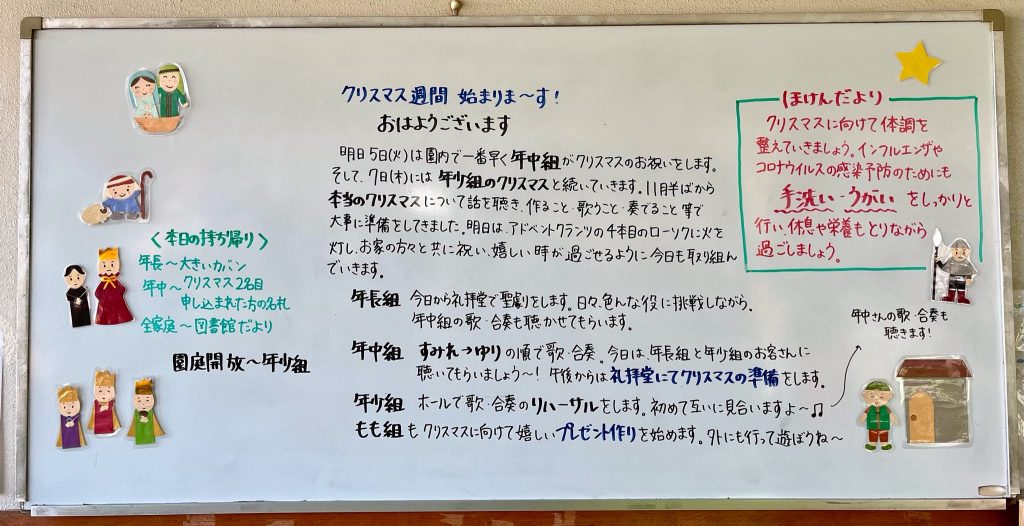 クリスマス週間 始まりま〜す！
おはようございます
明日5日(火)は園内で一番早く年中組がクリスマスのお祝いをします。
そして、7日(木)には 年少組のクリスマスと続いていきます。11月半ばから
本当のクリスマスについて話を聴き、作ること・歌うこと・奏でること 等で
大事に準備をしてきました。明日は、アドベントクランツの4本目のローソクに火を
灯し、お家の方々と共に祝い、嬉しい時が過ごせるように今日も取り組ん
でいきます。
年長組 今日から礼拝堂で聖劇をします。日々、色んな役に挑戦しながら。
年中組の歌・合奏も聴かせてもらいます。
年中組 すみれ→ゆりの順で歌・合奏。今日は、年長組と年少組のお客さんに
聴いてもらいましょう〜！ 午後からは礼拝堂にてクリスマスの準備をします。
年少組 ホールで歌・合奏のリハーサルをします。初めて互いに見合いますよ〜♫
もも組も クリスマスに向けて嬉しいプレゼント作りを始めます。外にも行って遊ぼうね〜
〈本日の持ち帰り〉
年長〜大きいカバン
年中〜クリスマス2名目
申し込まれた方の名札
全家庭〜図書館だより
園庭開放〜年少組
ほけんだより
クリスマスに向けて体調を
整えていきましょう。インフルエンザや
コロナウイルスの感染予防のためにも
手洗い・うがい をしっかりと
行い、休息や栄養もとりながら
過ごしましょう。
年中さんの歌・合奏も
聴きます！